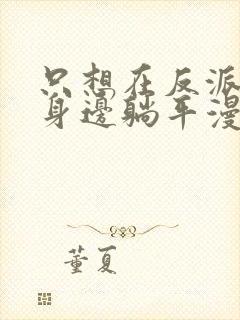 只想在反派
身邊躺平漫
董夏